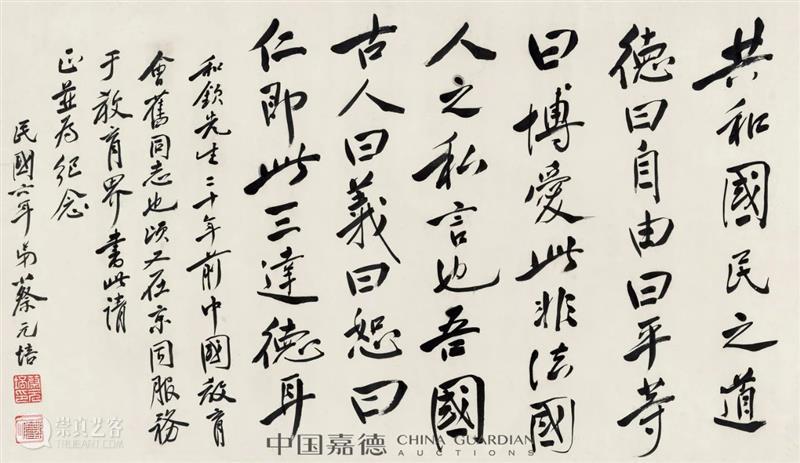 共和國民之道
德曰自由曰平等
曰博愛此非法國
人之私言也吾國
古人曰義曰恕曰
仁即此三達德耳
和欽先生二十年前中國教育
會舊同志也頃又在京同服務
于教育界書此請
正並爲紀念
民國六年弟蔡元培
崇真艺客
TRUEART.COM
中国嘉德
CHINA GUARDIAN
AUCTIONS